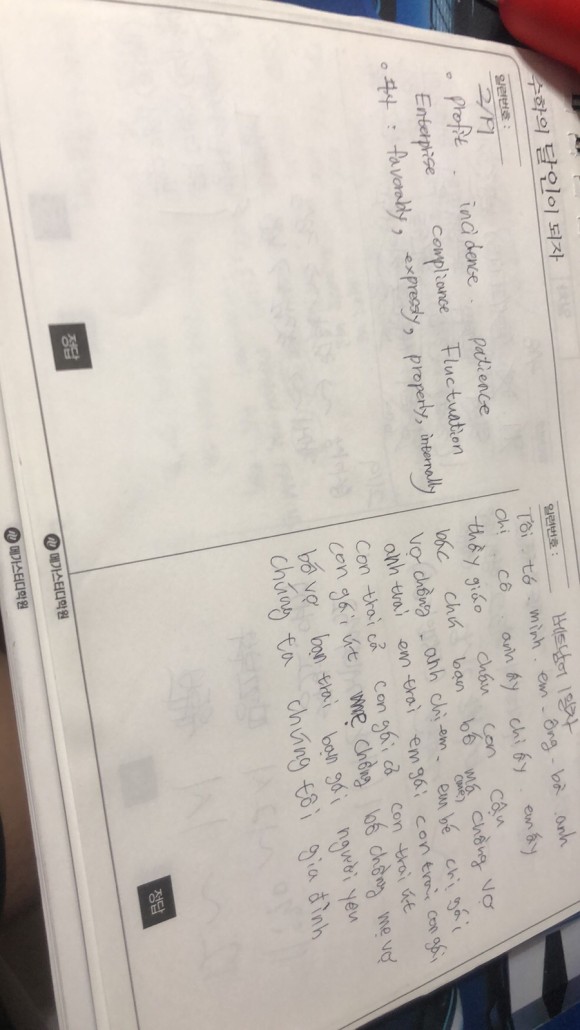 수학의 달인이 되자
일련번호 :
2/19
• profit . incidence . patience
Enterprise compliance Fluctuation
• 부사 : favorably, expressly, properly, internally
정답
메가스터디학원
일련번호 :
베트남어 1일차
Tôi - tớ - mình - em - ông - bà anh
chị cô anh ấy chị ấy . em ấy
thầy giáo cháu con cậu
bác chú bạn bố mẹ chồng vợ
vợ chồng - anh chị em - em bé chị gái
anh trai em trai em gái con trai con gái
con trai cả con gái cả con trai út
con gái út mẹ chồng bố chồng mẹ vợ
bố vợ bạn trai bạn gái người yêu
chúng ta chúng tôi gia đình
정답
메가스터디학원